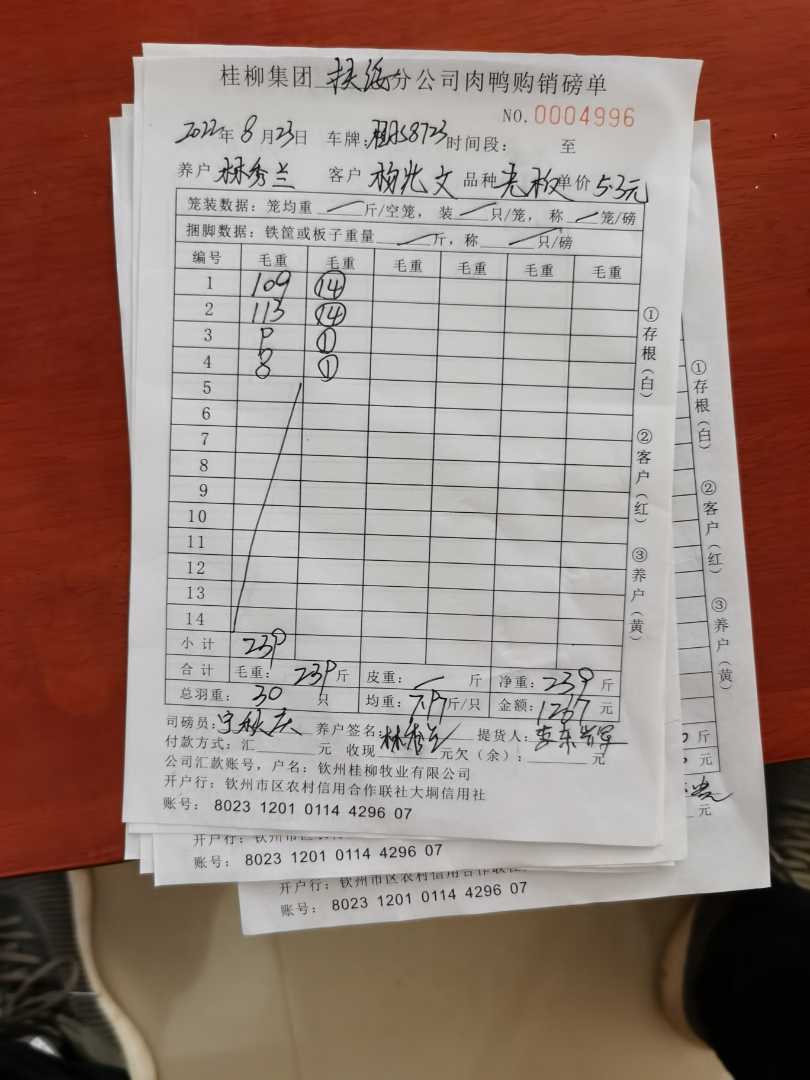 桂柳集团 扶绥 分公司肉鸭购销磅单
NO.0004996
2022年 8月23日 车牌: 58723 时间段: 至
养户 林秀兰 客户 杨光文 品种 老板 单价 5.3元
笼装数据: 笼均重 斤/空笼, 装 只/笼, 称 笼/磅
捆脚数据: 铁筐或板子重量 斤, 称 只/磅
编号 毛重 毛重 毛重 毛重 毛重 毛重
1 109 14
2 113 14
3 9 1
4 8 1
5
6
7
8
9
10
11
12
13
14
小计 239
合计 毛重: 239 斤 皮重: 斤 净重: 239 斤
总羽重: 30 只 均重: 7.97 斤/只 金额: 1267 元
司磅员: 宁秋庆 养户签名: 林秀兰 提货人:
付款方式: 汇 元 收现 元欠(余): 元
公司汇款账号, 户名: 钦州桂柳牧业有限公司
开户行: 钦州市区农村信用合作联社大垌信用社
账号: 8023 1201 0114 4296 07
①存根(白) ②客户(红) ③养户(黄)
①存根(白) ②客户(红) ③养户(黄)
斤
元
元
开户行: 钦州市区农村信用合作联社
账号: 8023 1201 0114 4296 07
开户行: 钦州市区农村信用合作联社
账号: 8023 1201 0114 4296 07